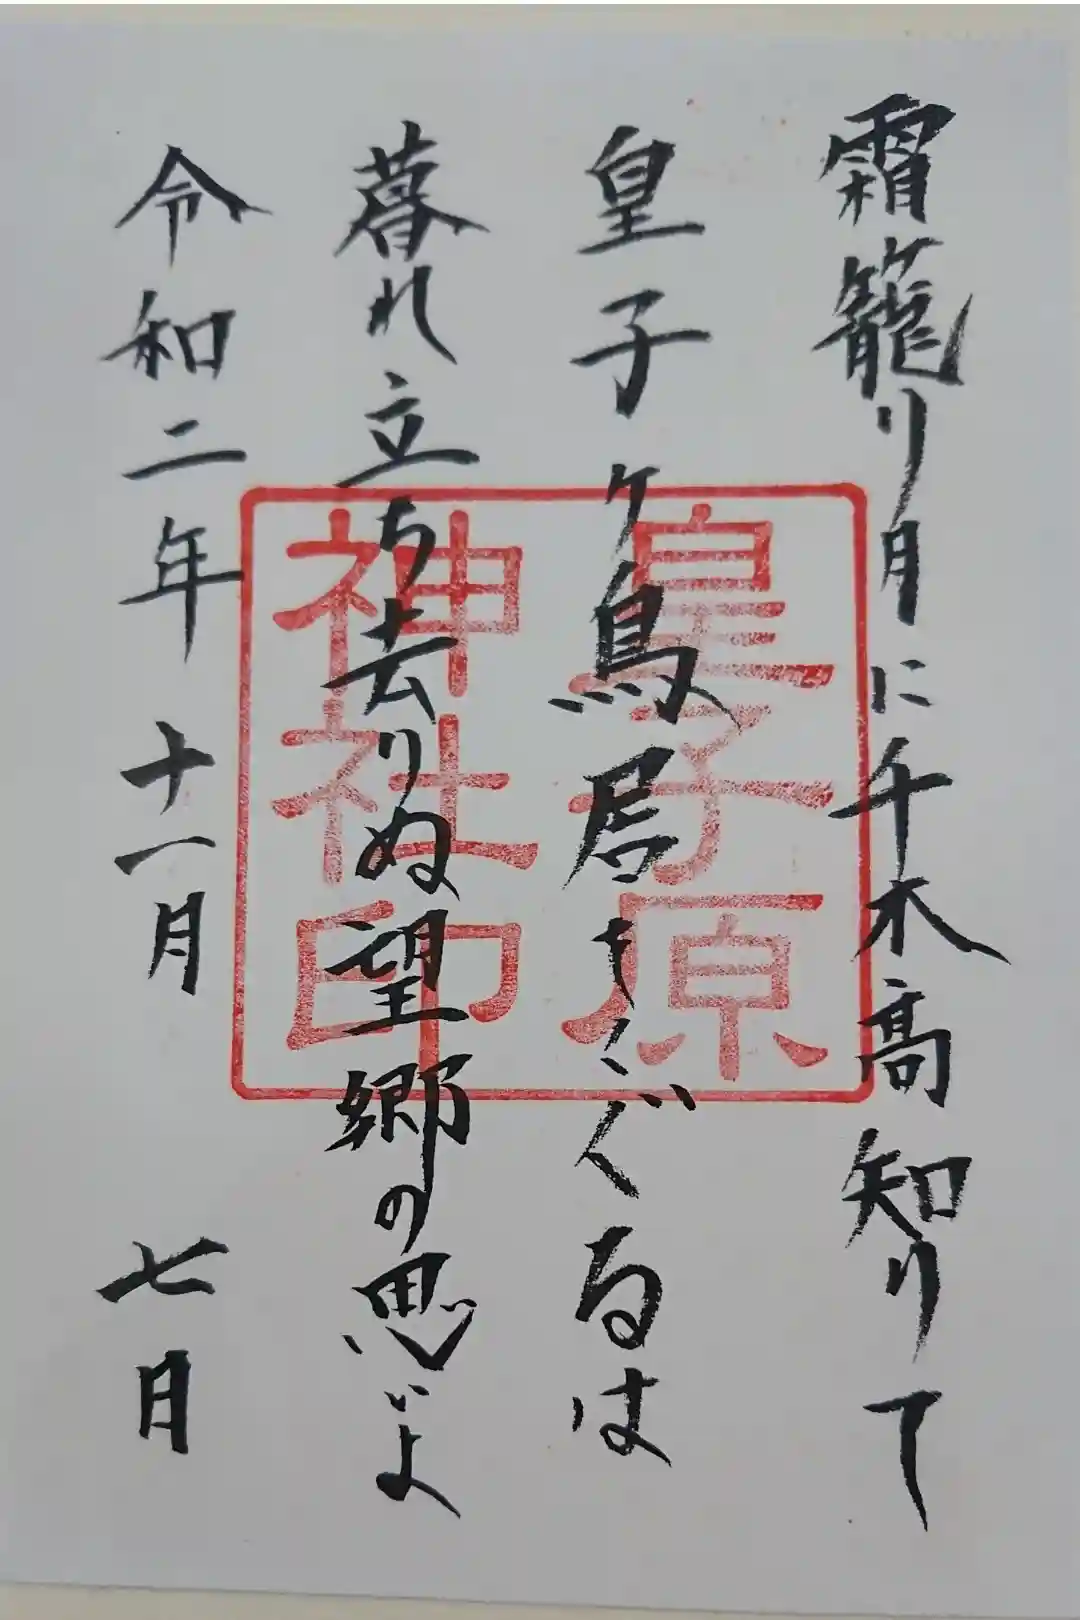 霜籠り月に千木高知りて
皇子ヶ鳥居もくぐるは
暮れ立ち去りぬ望郷の思いよ
令和二年十一月 七日
皇子原
神社印